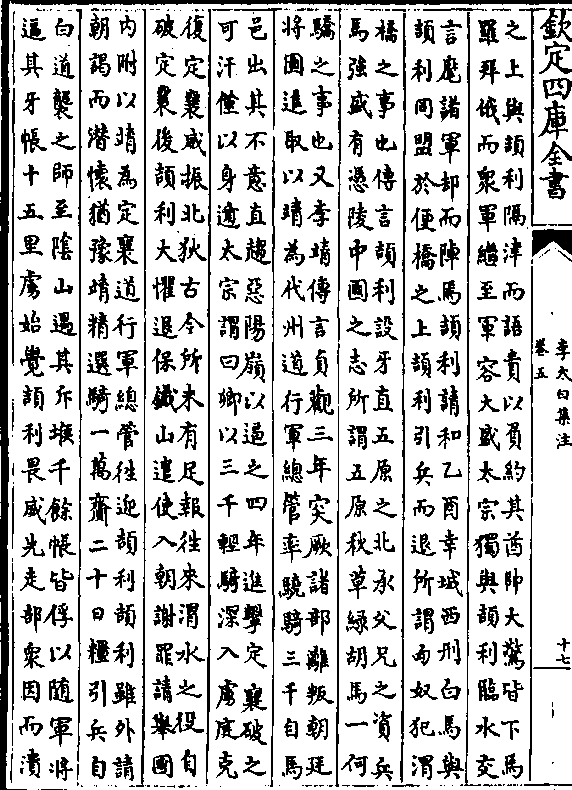 欽定四庫全書
李太白集注
卷五
十七
之上與頡利隔津而語責以負約其酋帥大驚皆下馬
羅拜俄而衆軍繼至軍容大盛太宗獨與頡利臨水交
言麾諸軍却而陣焉頡利請和乙酉幸城西刑白馬與
頡利同盟於便橋之上頡利引兵而退所謂匈奴犯渭
橋之事也傳言頡利設牙直五原之北承父兄之資兵
馬強盛有憑陵中國之志所謂五原秋草緑胡馬一何
驕之事也又李靖傳言貞觀三年突厥諸部離叛朝廷
將圖進取以靖為代州道行軍總管率驍騎三千自馬
邑出其不意直趨惡陽嶺以逼之四年進擊定襄破之
可汗僅以身遁太宗謂曰卿以三千輕騎深入虜庭克
復定襄威振北狄古今所未有足報往來渭水之役自
破定襄後頡利大懼退保鐵山遣使入朝謝罪請舉國
内附以靖為定襄道行軍總管往迎頡利頡利雖外請
朝謁而潛懷猶豫靖精選騎一萬齎二十日糧引兵自
白道襲之師至陰山遇其斥堠千餘帳皆俘以随軍將
逼其牙帳十五里虜始覺頡利畏威先走部衆因而潰